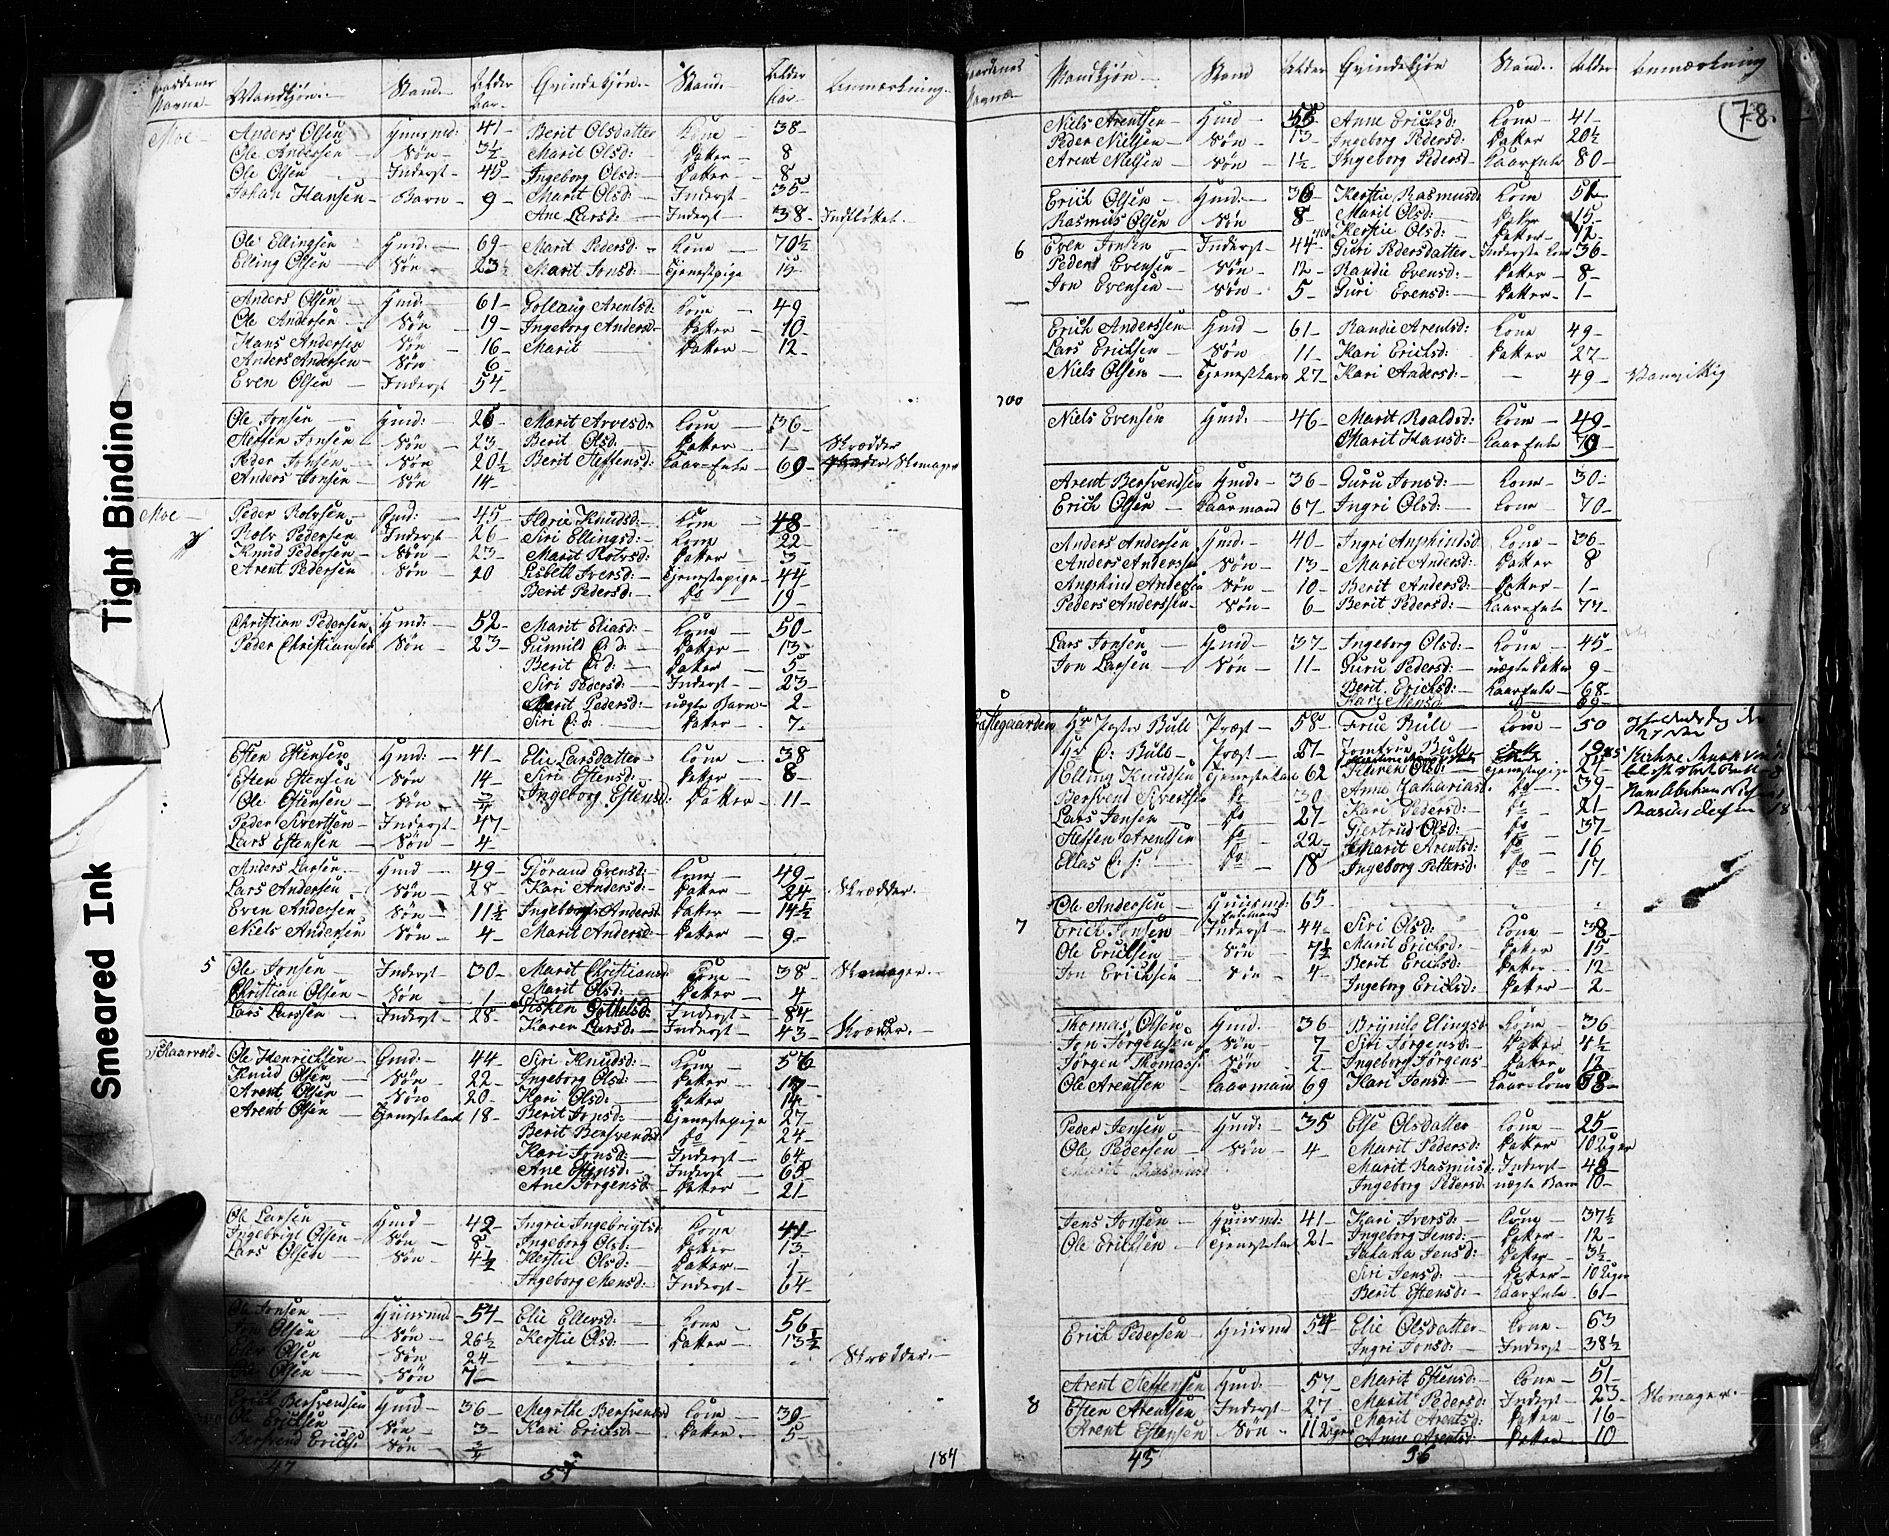 Tight Binding
Smeared Ink
Mandkjøn Stand Alder Qvindekjøn Stand Alder Anmærkning
Moe Anders Olsen Huusmd: 41 Berit Olsdatter Kone 38
Ole Andersen Søn 3½ Marit Olsd: Datter 8
Ole Olsen Inderst 45 Ingeborg Olsd: Datter 8
Johan Hansen Barn 9 Marit Olsd: Inderst 35
Ane Larsd: Inderst 38
Ole Ellingsen Hmd: 69 Marit Pedersd: Kone 70½
Elling Olsen Søn 23½ Marit Jonsd: Tjenestepige 15
Anders Olsen Hmd: 61 Gollaug Arentsd: Kone 49
Ole Andersen Søn 19 Ingeborg Andersd Datter 10
Hans Andersen Søn 16 Marit Datter 12
Anders Andersen Søn 6
Even Olsen Inderst 54
Ole Jonsen Hmd: 26 Marit Arvesd: Kone 36
Steffen Jonsen Søn 23 Berit Olsd: Datter 1 Skrædder
Peder Jonsen Søn 20½ Berit Steffensd: 60 Skomager
Anders Jonsen Søn 14
Moe Peder Rolvsen Gmd: 45 Aldrie Knudsd: Kone 48
Rolv Pedersen Inderst 26 Siri Ellingsd: Kone 22
Knud Pedersen Søn 23 Marit Rolvsd: Datter 3
Arent Pedersen Søn 20 Lisbeth Iversd: Tjenestepige 44
Berit Pedersd: Do 19
Christian Pedersen Hmd: 52 Marit Eliasd: Kone 50
Peder Christiansen Søn 23 Gunnild C: d: Datter 13
Berit C: d: Datter 5
Siri Pedersd: Inderst 23
Marit Pedersd: uægte Barn 2
Siri C: d: Datter 7
Esten Estensen Hmd: 41 Elie Larsdatter Kone 38
Esten Estensen Søn 14 Siri Estensd: Datter 8
Ole Estensen Søn ¾ Ingeborg Estensd: Datter 11
Peder Sivertsen Inderst 47
Lars Estensen Søn 4
Anders Larsen Hmd 49 Gjørand Evensd: Kone 49
Lars Andersen Søn 28 Kari Andersd: Datter 24 Skrædder
Even Andersen Søn 11½ Ingeborg Andersd Datter 14½
Niels Andersen Søn 4 Marit Andersd Datter 9
5 Ole Jonsen Inderst 30 Marit Christiansd Kone 38 Skomager
Christian Olsen Søn 1 Marit Olsd: Datter 4
Lars Larssen Inderst 28 Inderst 84
Karen Larsd: Inderst 43 Skrædder
Schaarvold Ole Henrichsen Gmd: 44 Siri Knudsd: Kone 56
Knud Olsen Søn 22 Ingeborg Olsd: Datter 17
Arent Olsen Søn 20 Kari Olsd: Datter 14
Arent Olsen Tjenestekarl 18 Berit Jonsd: Tjenestepige 27
Berit Bersvendsd Do 24
Kari Jonsd: Inderst 64
Ane Estensd: Inderst 65
Ane Jørgensd: Datter 21
Ole Larsen Hmd 42 Ingrie Ingebrigtsd Kone 41
Ingebrigt Olsen Søn 8 Ingeborg Olsd: Datter 13
Lars Olsen Søn 4½ Kerstie Olsd: Datter 1
Ingeborg Monsd: Inderst 64
Ole Jonsen Huusmd 54 Elie Ellersd: Kone 56
Jon Olsen Søn 26½ Kerstie Olsd: Datter 13½
Søn 24 Skrædder
Ole Olsen Søn 7
Erich Bersvendsen Hmd 36 Megrthe Bersvendsd Kone 30
Ole Erichsen Søn 3 Kari Erichsd: Datter 5
Bersvend Erichs: Søn ¾
47 57 184
Mandkjøn Stand Alder Qvindekjøn Stand Alder Anmærkning
78.
Niels Arentsen Hmd 56 Anne Erichsd: Kone 41
Peder Nielsen Søn 13 Ingeborg Pedersd: Datter 20½
Arent Nielsen Søn 1½ Ingeborg Pedersd Kaarenke 80
Erich Olsen Hmd: 36 Kerstie Rasmusd: Kone 51
Rasmus Olsen Søn 8 Marit Olsd: Datter 15
Kerstie Olsd: Datter 12
6 Even Jonsen Inderst 44 Guri Pedersdatter Inderste Kone 36
Peder Evensen Søn 12 Randie Evensd: Datter 8
Jon Evensen Søn 5 Guri Evensd: Datter 1
Erich Anderssen Hmd 61 Randie Arentsd: Kone 49
Lars Erichsen Søn 11 Kari Erichsd: Datter 27
Niels Olsen Tjenestkarl 27 Kari Andersd: 49 Vanvittig
700 Niels Evensen Hmd: 46 Marit Roaldsd: Kone 49
Marit Hansd: Kaarenke 70
Arent Bersvendsen Hmd: 36 Guru Jonsd: Kone 30
Erich Olsen Kaarmand 67 Ingri Olsd: Kone 70
Anders Andersen Hmd: 40 Ingri Anphindsd Kone 36
Anders Anderssen Søn 13 Marit Andersd: Datter 8
Angphind Andersen Søn 10 Berit Andersd: Datter 1
Peders Anderssen Søn 6 Berit Pedersd: Kaarenke 77
Lars Jonsen Hmd 37 Ingeborg Olsd: Kone 45
Jon Larsen Søn 11 Guru Pedersd: uægte Datter 9
Berit Erichsd: Kaarenke 68
Kari Monsd: 69
Præstegaarden Hr Pastor Bull Præst 58 Frue Bull Kone 50
Hr C: Bull Præst 27 Jomfrue Bull 19
Elling Knudsen Tjenestekarl 62 Karen Olsd: Tjenestepige 27
Bersvend Sivertsen Do 30 Anne Zachariasd: Do 39
Lars Jensen Do 27 Kari Pedersd: Do 21
Steffen Arentsen Do 22 Gjertrud Olsd: Do 37
Elias C: s: Do 18 Marit Arentsd: Do 16
Ingeborg Pettersd: Do 17
Ole Andersen Huusmd: 65
7 Erich Jonsen Inderst 44 Siri Olsd: Kone 38
Ole Erichsen Søn 7½ Marit Erichsd: Datter 15
Jon Erichsen Søn 4 Berit Erichsd: Datter 12
Ingeborg Erichsd: Datter 2
Thomas Olsen Hmd: 36 Brynild Elingsd Kone 36
Jon Jørgensen Søn 7 Siri Jørgensd: Datter 4½
Jørgen Thomass: Søn 2 Ingeborg Jørgens Datter 12
Ole Arentsen Kaarmand 69 Kari Jonsd: Kaarkone 68
Peder Jensen Hmd: 35 Else Olsdatter Kone 25
Ole Pedersen Søn 4 Marit Pedersd: Datter 10 Uger
Marit Rasmusd: Inderst 48
Ingeborg Pedersd: uægte Barn 10
Jens Jonsen Huusmd: 41 Kari Iversd: Kone 37½
Ole Erichsen Tjenestekarl 21 Ingeborg Jensd: Datter 12
Jensd: Datter 3½
Siri Jensd: Datter 10 Uger
Berit Estensd: Kaarenke 61
Erich Pedersen Huusmd 54 Elie Olsdatter Kone 63
Ingri Jonsd: Inderst 38½
Arent Steffensen Hmd: 57 Marit Estensd: Kone 51
8 Esten Arentsen Inderst 27 Marit Pedersd: Inderst 23 Skomager
Arent Estensen Søn 11 Uger Marit Arentsd: Datter 16
Anne Arentsd Datter 10
45 56